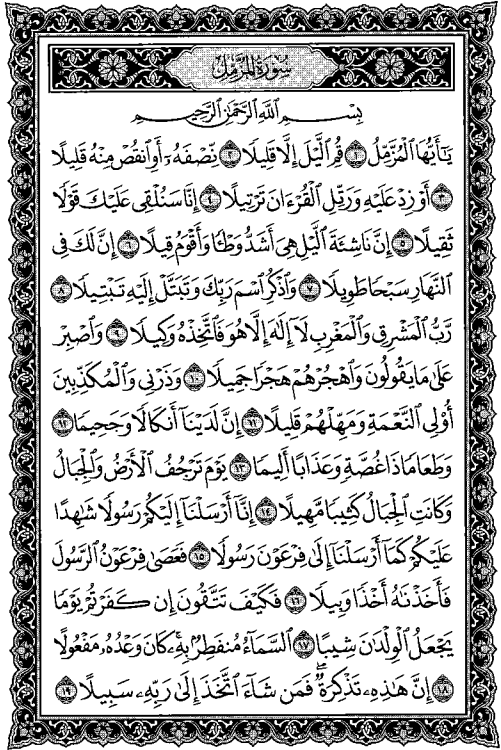 سُورَةُ الْمُزَّمِّلِ
بِسْمِ اللَّهِ الرَّحْمَٰنِ الرَّحِيمِ
يَا أَيُّهَا الْمُزَّمِّلُ ١ قُمِ اللَّيْلَ إِلَّا قَلِيلًا ٢ نِّصْفَهُ أَوِ انقُصْ مِنْهُ قَلِيلًا
٣ أَوْ زِدْ عَلَيْهِ وَرَتِّلِ الْقُرْءَانَ تَرْتِيلًا ٤ إِنَّا سَنُلْقِي عَلَيْكَ قَوْلًا
ثَقِيلًا ٥ إِنَّ نَاشِئَةَ اللَّيْلِ هِيَ أَشَدُّ وَطْئًا وَأَقْوَمُ قِيلًا ٦ إِنَّ لَكَ فِي
النَّهَارِ سَبْحًا طَوِيلًا ٧ وَاذْكُرِ اسْمَ رَبِّكَ وَتَبَتَّلْ إِلَيْهِ تَبْتِيلًا ٨
رَّبُّ الْمَشْرِقِ وَالْمَغْرِبِ لَا إِلَٰهَ إِلَّا هُوَ فَاتَّخِذْهُ وَكِيلًا ٩ وَاصْبِرْ
عَلَىٰ مَا يَقُولُونَ وَاهْجُرْهُمْ هَجْرًا جَمِيلًا ١٠ وَذَرْنِي وَالْمُكَذِّبِينَ
أُولِي النَّعْمَةِ وَمَهِّلْهُمْ قَلِيلًا ١١ إِنَّ لَدَيْنَا أَنكَالًا وَجَحِيمًا ١٢
وَطَعَامًا ذَا غُصَّةٍ وَعَذَابًا أَلِيمًا ١٣ يَوْمَ تَرْجُفُ الْأَرْضُ وَالْجِبَالُ
وَكَانَتِ الْجِبَالُ كَثِيبًا مَّهِيلًا ١٤ إِنَّا أَرْسَلْنَا إِلَيْكُمْ رَسُولًا شَاهِدًا
عَلَيْكُمْ كَمَا أَرْسَلْنَا إِلَىٰ فِرْعَوْنَ رَسُولًا ١٥ فَعَصَىٰ فِرْعَوْنُ الرَّسُولَ
فَأَخَذْنَاهُ أَخْذًا وَبِيلًا ١٦ فَكَيْفَ تَتَّقُونَ إِن كَفَرْتُمْ يَوْمًا
يَجْعَلُ الْوِلْدَانَ شِيبًا ١٧ السَّمَاءُ مُنفَطِرٌ بِهِ كَانَ وَعْدُهُ مَفْعُولًا
١٨ إِنَّ هَٰذِهِ تَذْكِرَةٌ فَمَن شَاءَ اتَّخَذَ إِلَىٰ رَبِّهِ سَبِيلًا ١٩